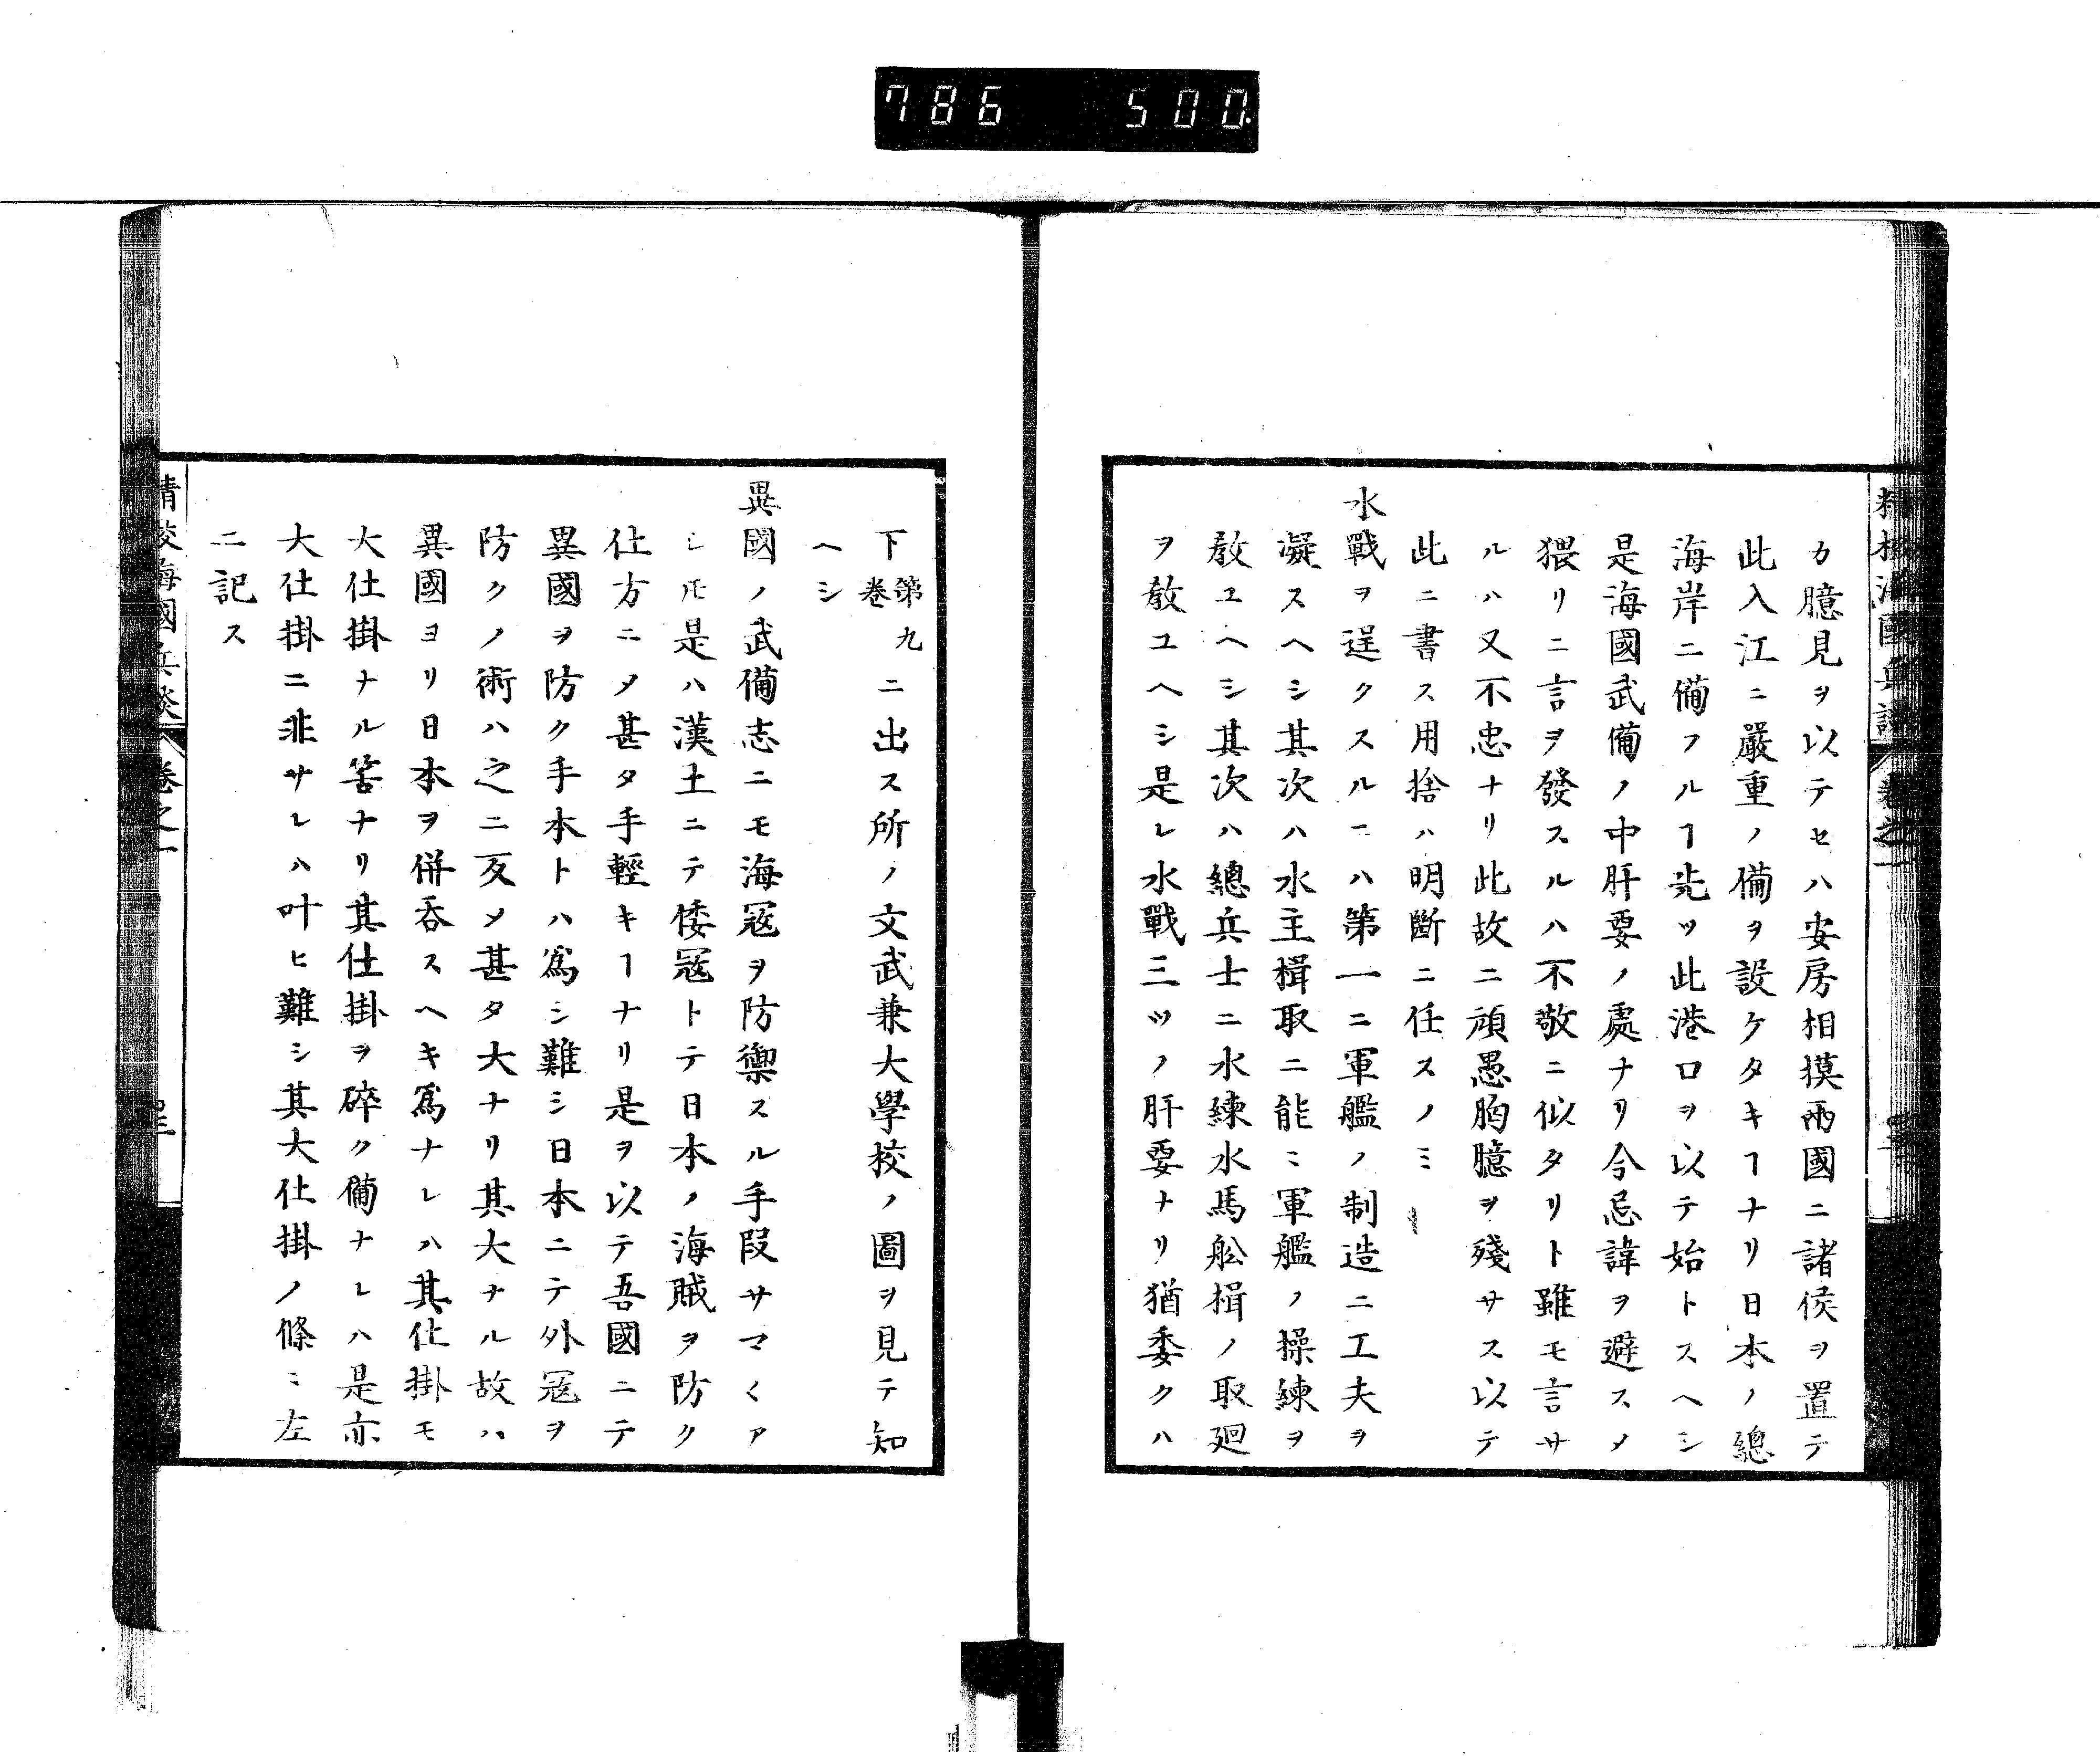 786 500.
精校海國兵談 卷之一
カ臆見ヲ以テセハ安房相摸兩國ニ諸侯ヲ置テ
此入江ニ嚴重ノ備ヲ設ケタキヿナリ日本ノ總
海岸ニ備フルヿ先ツ此港口ヲ以テ始トスヘシ
是海國武備ノ中肝要ノ處ナリ今忌諱ヲ避スメ
猥リニ言ヲ發スルハ不敬ニ似タリト雖モ言サ
ルハ又不忠ナリ此故ニ頑愚胸臆ヲ殘サス以テ
此ニ書ス用捨ハ明斷ニ任スノミ
水戰ヲ逞クスルニハ第一ニ軍艦ノ制造ニ工夫ヲ
凝スヘシ其次ハ水主楫取ニ能ニ軍艦ノ操練ヲ
敎ユヘシ其次ハ總兵士ニ水練水馬舩楫ノ取廻
ヲ敎ユヘシ是レ水戰三ツノ肝要ナリ猶委クハ
下第九卷ニ出ス所ノ文武兼大學校ノ圖ヲ見テ知
ヘシ
異國ノ武備志ニモ海寇ヲ防禦スル手段サマ〱ア
レ𪜈是ハ漢土ニテ倭寇トテ日本ノ海賊ヲ防ク
仕方ニメ甚タ手輕キヿナリ是ヲ以テ吾國ニテ
異國ヲ防ク手本トハ爲シ難シ日本ニテ外寇ヲ
防クノ術ハ之ニ反メ甚タ大ナリ其大ナル故ハ
異國ヨリ日本ヲ併呑スヘキ爲ナレハ其仕掛モ
大仕掛ナル筈ナリ其仕掛ヲ碎ク備ナレハ是亦
大仕掛ニ非サレハ叶ヒ難シ其大仕掛ノ條ニ左
ニ記ス
精校海國兵談 卷之一